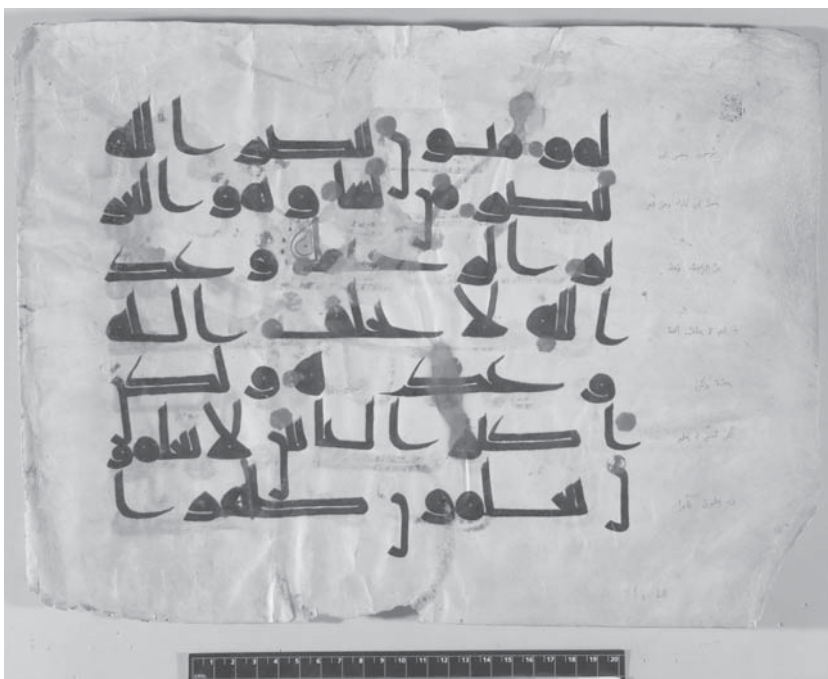 لمومنون بنصر الله
ينصر من يشا وهو العز
يز الرحيم وعد
الله لا يخلف الله
وعده ولكن
اكثر الناس لا يعلمو
ن يعلمون ظهرا
1 2 3 4 5 6 7 8 9 10 11 12 13 14 15 16 17 18 19 20